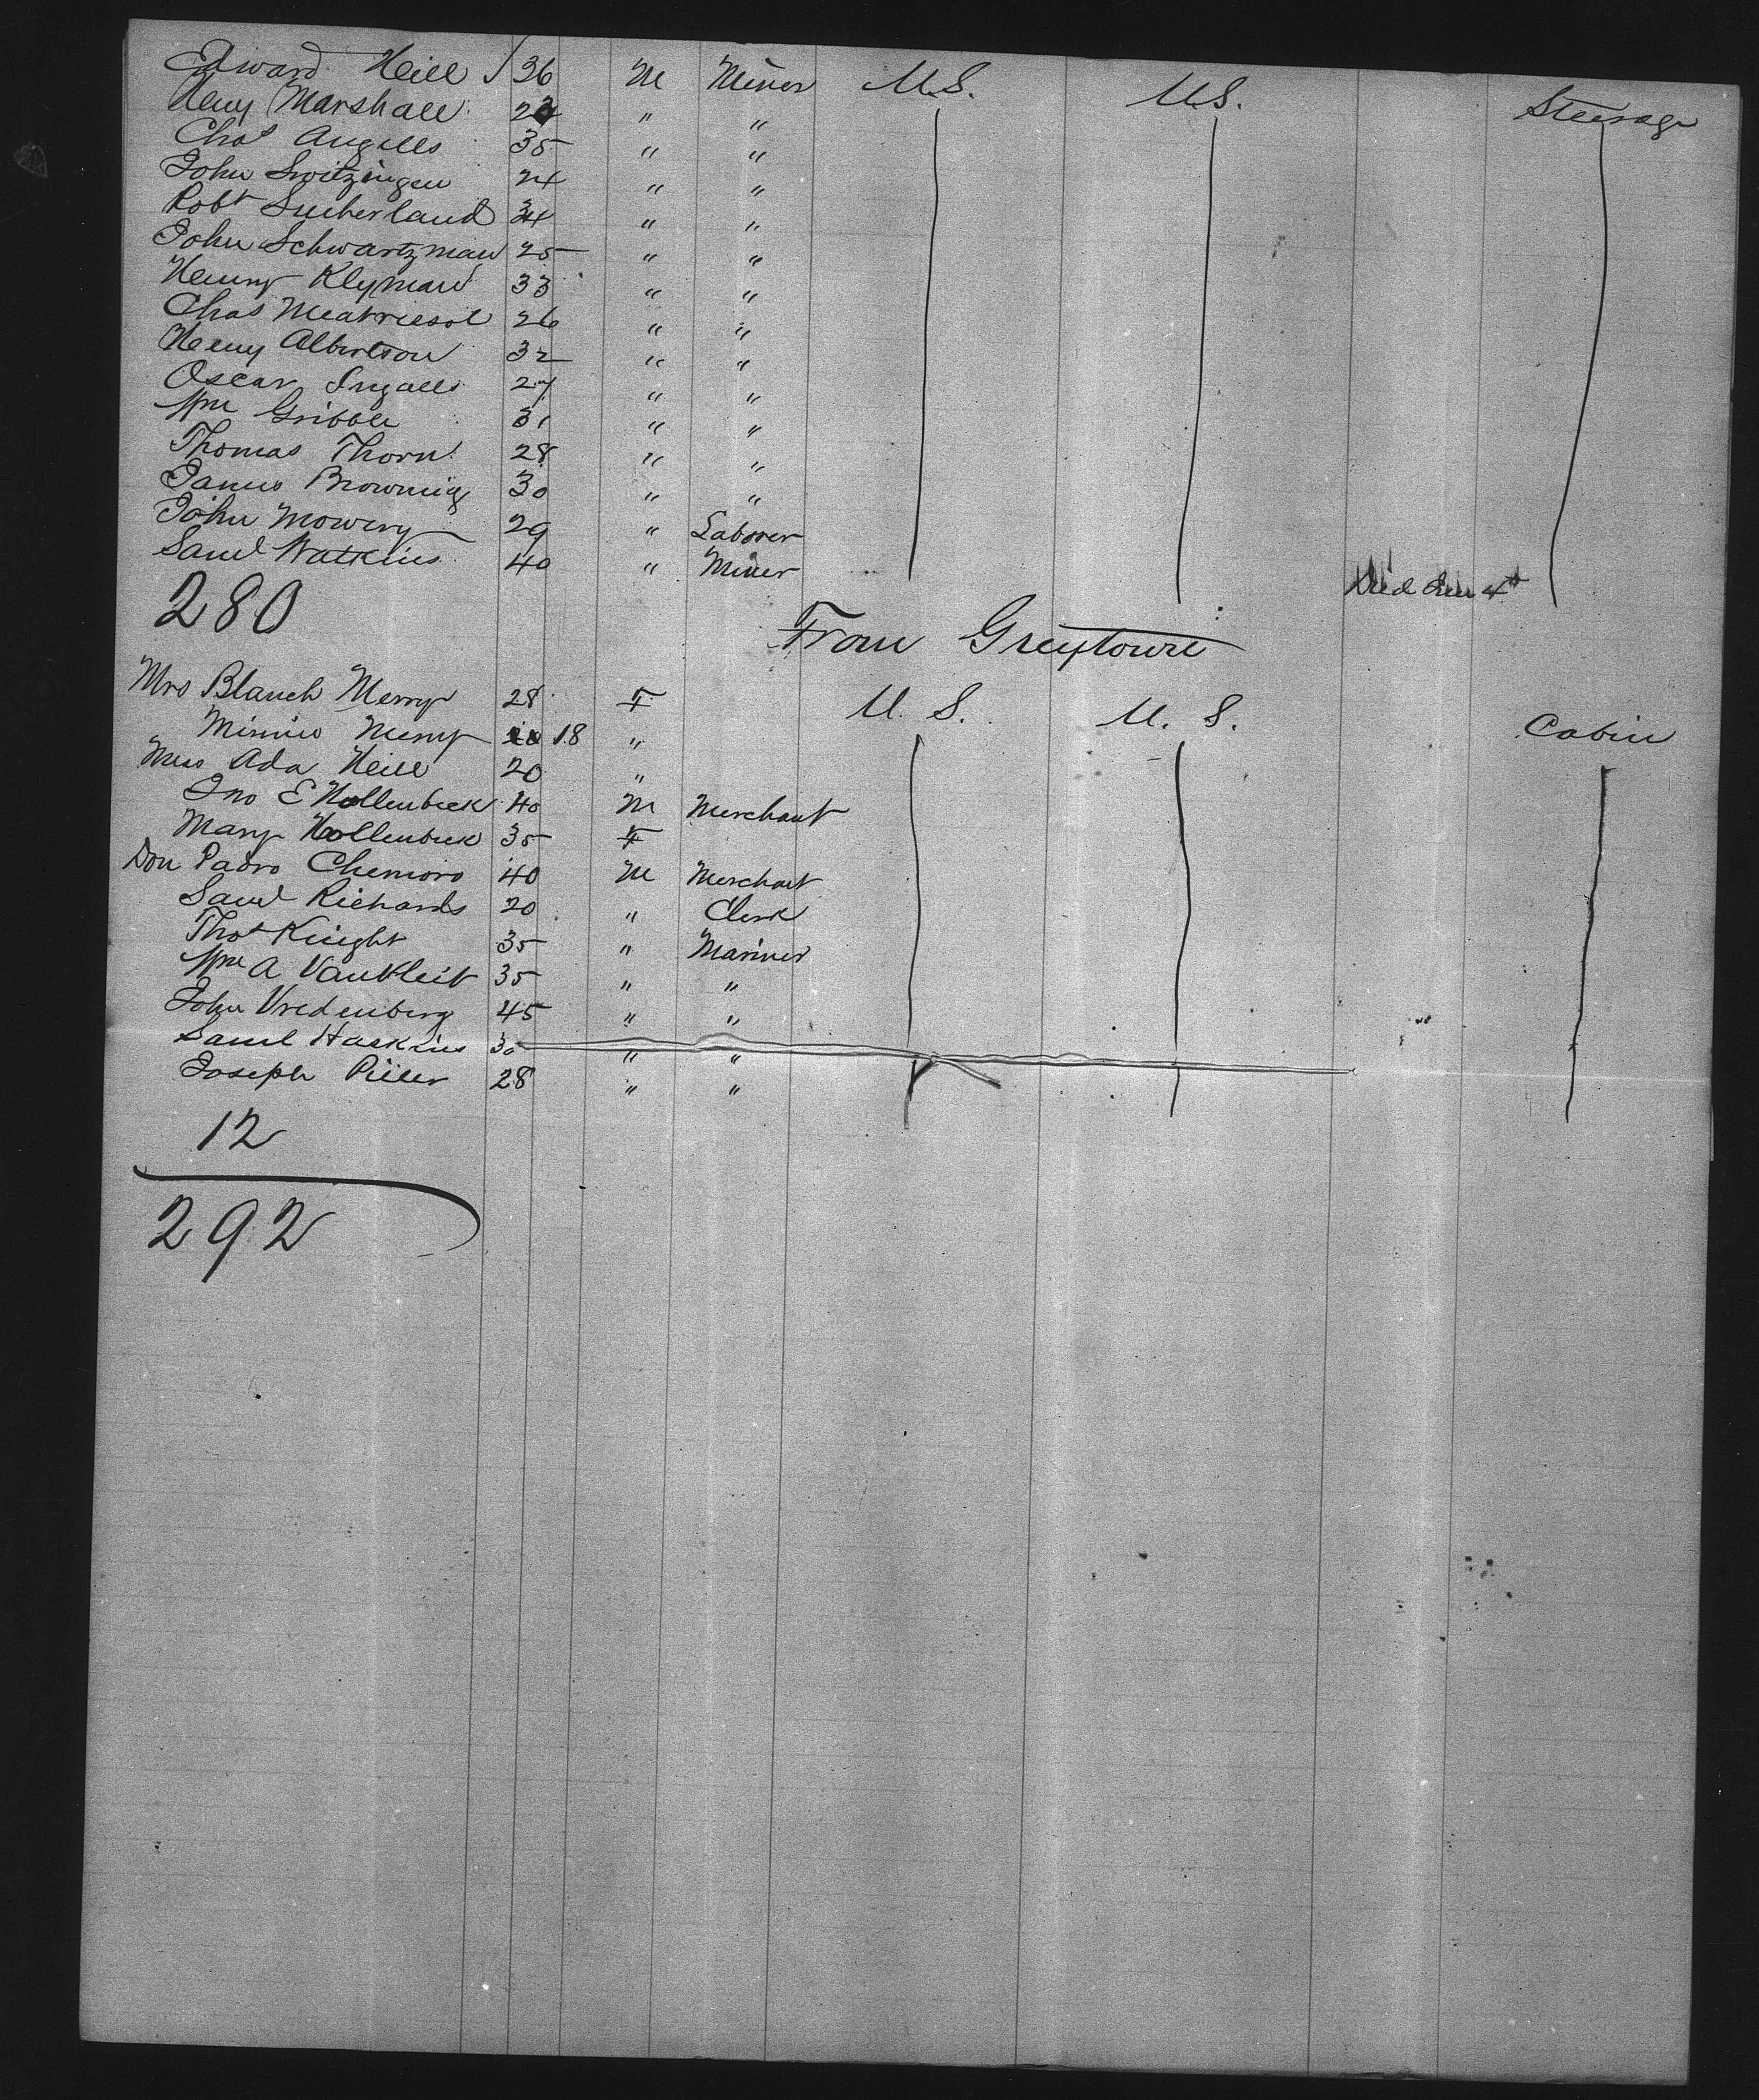 Edward Hill 36 M Miner U.S. U.S. Steerage
Heny Marshall " "
Chas Angells 35 " "
John Switzingen 24 " "
Robt Sutherland 34 " "
John Schwartzman 25 " "
Henry Klyman 33 " "
Chas 26 " "
Henry Albertson 32 " "
Oscar Ingalls 27 " "
Wm Gribble 31 " "
Thomas Thorn 28 " "
James Browning 30 " "
John Mowery 29 " Laborer
Saml Watkins 40 " Miner Died 4th
280
From Greytown
Mrs Blanch Merry 28 F U. S. U. S. Cabin
Minnie Merry 18 "
Miss Ada Hill 20 "
Jno E Hollenbeck 40 M Merchant
Mary Hollenbeck 35 F
Don Padro Chemoro 40 M Merchant
Saml Richards 20 " Clerk
Thos Knight 35 " Mariner
Wm A VanKleit 35 " "
John Vredenberg 45 " "
Saml Haskins 30 " "
Joseph Piller 28 " "
12
292